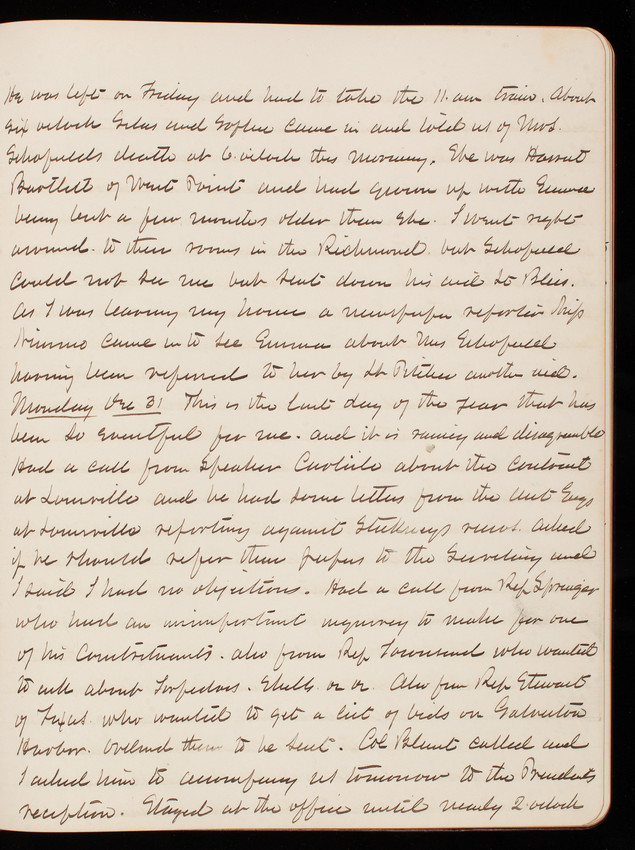 He was left on Friday and had to take the 11. am train. About
six oclock Silas and Sophie came in and told us of Mrs.
Schofields death at 6. oclock this morning. She was Harriet
Bartlett of West Point and had grown up with Emma
being but a few months older than she. I went right
around. to their rooms in the Richmond. but Schofield
could not see me but sent down his aid Lt Bliss.
As I was leaving my home a newspaper reporter Miss
Nimmo came in to see Emma about Mrs Schofield
having been referred to her by Lt Pitcher another aid.
Monday Dec 31 This is the last day of the year that has
been so eventful for me. and it is rainy and disagreeable
Had a call from Speaker Carlisle about the Contract
at Louisville and he had some letters from the asst Engs
at Louisville reporting against Stickneys recos. asked
if he should refer these papers to the Secretary and
I said I had no objections. Had a call from Rep Springer
who had an unimportant inquiry to make for one
of his Constituents. also from Rep Townsend who wanted
to ask about Torpedoes. Shells or or. Also from Rep Stewart
of Texas who wanted to get a list of bids on Galveston
Harbor. ordered them to be sent. Col Blunt called and
I asked him to accompany us tomorrow to the Presidents
reception. Stayed at the office until nearly 2. oclock